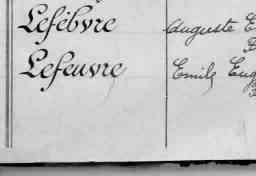 Lefébvre Auguste E
Lefeuvre Emile Eug